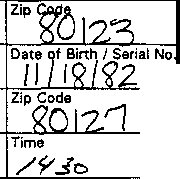 Zip Code
80123
Date of Birth / Serial No.
11/18/82
Zip Code
80127
Time
1430